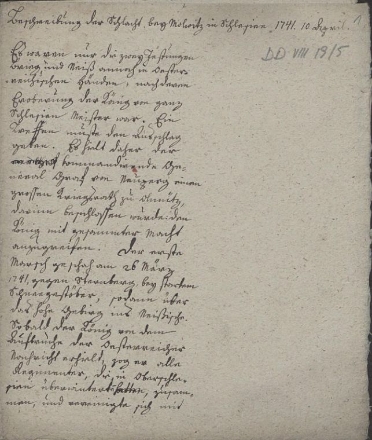 Beschreibung der Schlacht bey Molwitz in Schlesien 1741. 10 April.
1
DD VIII 19/5
Es waren nur die zwey Festungen
Brieg und Neiß annoch in Oester-
reichischen Händen, nach deren
Eroberung der König von ganz
Schlesien Meister war. Ein
Treffen mußte den Ausschlag
geben. Es hielt daher der
kommandirende Ge-
neral Graf von Neuperg einen
grossen Kriegsrath zu Olmütz,
darinn beschlossen wurde den
König mit gesammter Macht
anzugreifen. Der erste
Marsch geschah am 26 März
1741 gegen Sternberg, bey starkem
Schneegestöber, sodann über
das hohe Gebirg ins Neissische.
Sobald der König von dem
der Oesterreicher
Nachricht erhielt, zog er alle
Regimenter, die in Oberschle-
sien überwintert hatten, zusam-
men, und vereinigte sich mit